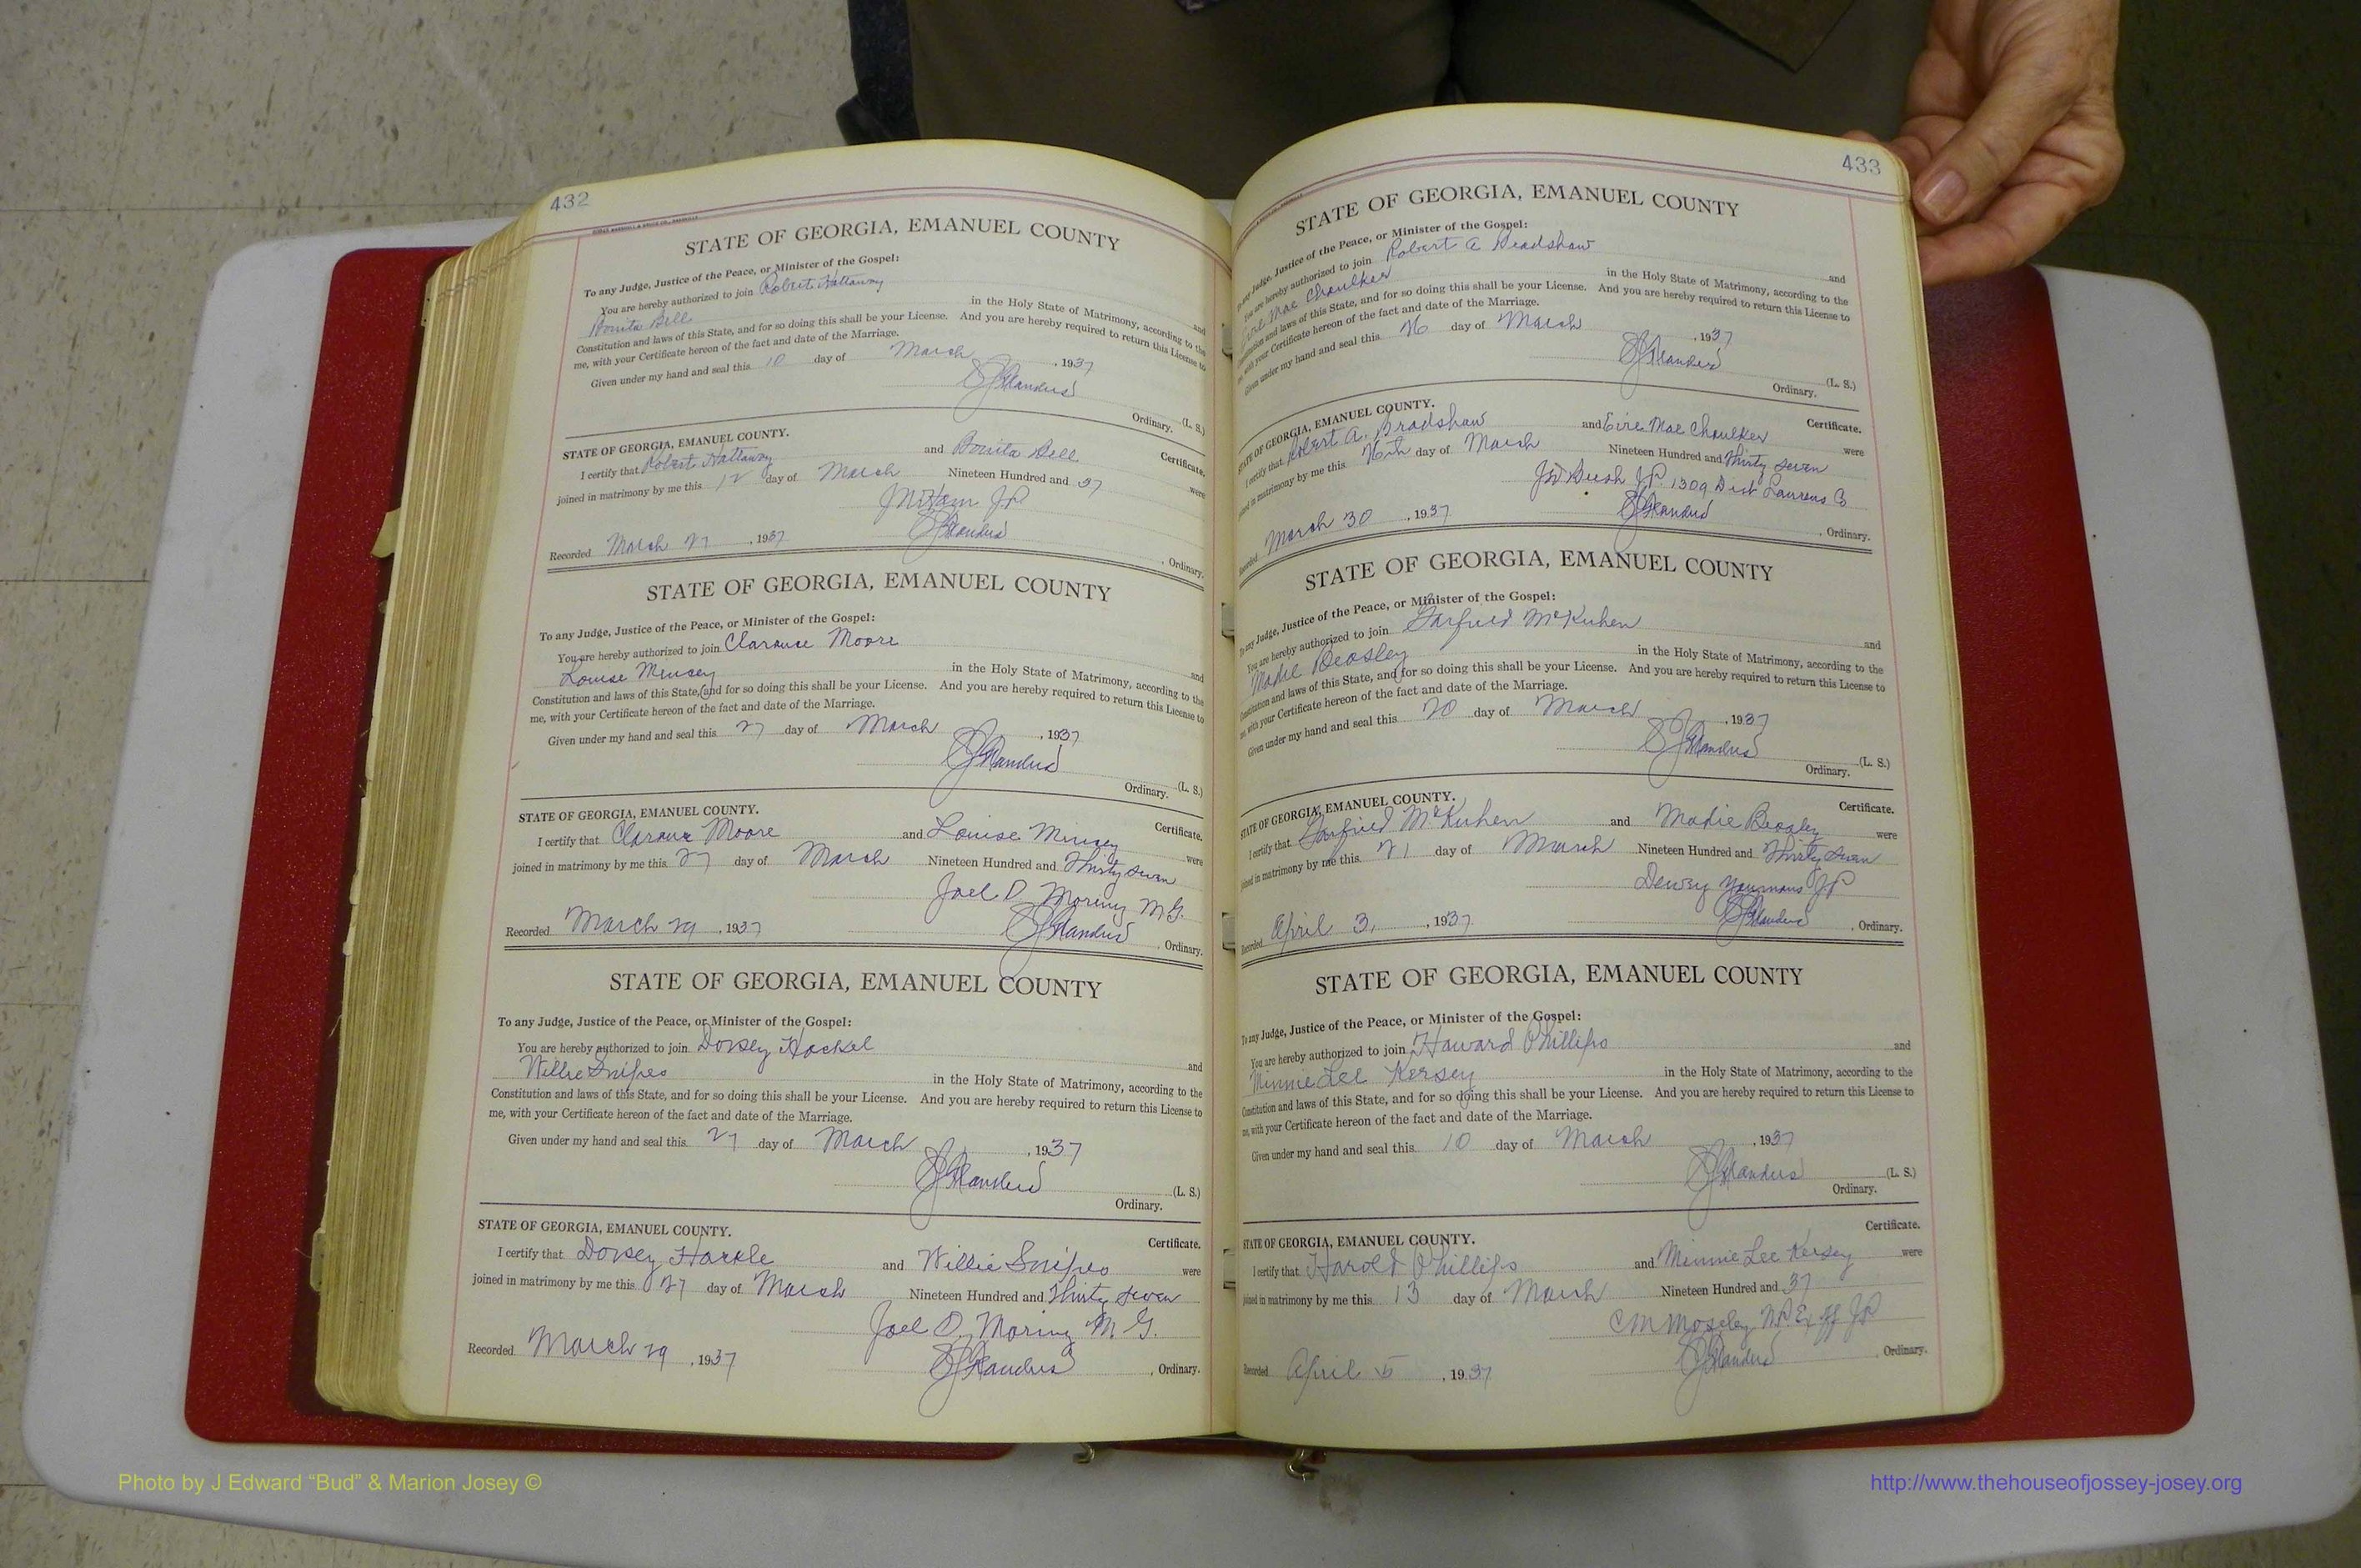 432
STATE OF GEORGIA, EMANUEL COUNTY
To any Judge, Justice of the Peace, or Minister of the Gospel:
You are hereby authorized to join Robert Hattaway and
Bonita Bell in the Holy State of Matrimony, according to the
Constitution and laws of this State, and for so doing this shall be your License. And you are hereby required to return this License to
me, with your Certificate hereon of the fact and date of the Marriage.
Given under my hand and seal this 10 day of March, 1937
(L. S.)
Ordinary.
STATE OF GEORGIA, EMANUEL COUNTY.
Certificate.
I certify that Robert Hattaway and Bonita Bell were
joined in matrimony by me this 12 day of March Nineteen Hundred and 37
JP
Recorded March 27, 1937, Ordinary.
STATE OF GEORGIA, EMANUEL COUNTY
To any Judge, Justice of the Peace, or Minister of the Gospel:
You are hereby authorized to join Clarence Moore and
Louise Mincey in the Holy State of Matrimony, according to the
Constitution and laws of this State, and for so doing this shall be your License. And you are hereby required to return this License to
me, with your Certificate hereon of the fact and date of the Marriage.
Given under my hand and seal this 27 day of March, 1937
(L. S.)
Ordinary.
STATE OF GEORGIA, EMANUEL COUNTY.
Certificate.
I certify that Clarence Moore and Louise Mincey were
joined in matrimony by me this 27 day of March Nineteen Hundred and Thirty seven
Joel D. Moring M.G.
Recorded March 29, 1937, Ordinary.
STATE OF GEORGIA, EMANUEL COUNTY
To any Judge, Justice of the Peace, or Minister of the Gospel:
You are hereby authorized to join Dorsey Hackel and
Willie Snipes in the Holy State of Matrimony, according to the
Constitution and laws of this State, and for so doing this shall be your License. And you are hereby required to return this License to
me, with your Certificate hereon of the fact and date of the Marriage.
Given under my hand and seal this 27 day of March, 1937
(L. S.)
Ordinary.
STATE OF GEORGIA, EMANUEL COUNTY.
Certificate.
I certify that Dorsey Harkle and Willie Snipes were
joined in matrimony by me this 27 day of March Nineteen Hundred and Thirty seven
Joel D. Moring M.G.
Recorded March 29, 1937, Ordinary.
433
STATE OF GEORGIA, EMANUEL COUNTY
To any Judge, Justice of the Peace, or Minister of the Gospel:
You are hereby authorized to join Robert A Bradshaw and
Mae Choulker in the Holy State of Matrimony, according to the
Constitution and laws of this State, and for so doing this shall be your License. And you are hereby required to return this License to
me, with your Certificate hereon of the fact and date of the Marriage.
Given under my hand and seal this 26 day of March, 1937
(L. S.)
Ordinary.
STATE OF GEORGIA, EMANUEL COUNTY.
Certificate.
I certify that Robert A. Bradshaw and Eire Mae Choulker were
joined in matrimony by me this 26th day of March Nineteen Hundred and Thirty seven
JW Bush J.P. 1309 Dist Laurens
Recorded March 30, 1937, Ordinary.
STATE OF GEORGIA, EMANUEL COUNTY
To any Judge, Justice of the Peace, or Minister of the Gospel:
You are hereby authorized to join Garfield McKuhen and
Madie Beasley in the Holy State of Matrimony, according to the
Constitution and laws of this State, and for so doing this shall be your License. And you are hereby required to return this License to
me, with your Certificate hereon of the fact and date of the Marriage.
Given under my hand and seal this 20 day of March, 1937
(L. S.)
Ordinary.
STATE OF GEORGIA, EMANUEL COUNTY.
Certificate.
I certify that Garfield McKuhen and Madie Beasley were
joined in matrimony by me this 21 day of March Nineteen Hundred and Thirty seven
Dewey Youmans JP
Recorded April 3, 1937, Ordinary.
STATE OF GEORGIA, EMANUEL COUNTY
To any Judge, Justice of the Peace, or Minister of the Gospel:
You are hereby authorized to join Haward Phillips and
Minnie Lee Kersey in the Holy State of Matrimony, according to the
Constitution and laws of this State, and for so doing this shall be your License. And you are hereby required to return this License to
me, with your Certificate hereon of the fact and date of the Marriage.
Given under my hand and seal this 10 day of March, 1937
(L. S.)
Ordinary.
STATE OF GEORGIA, EMANUEL COUNTY.
Certificate.
I certify that Harold Phillips and Minnie Lee Kersey were
joined in matrimony by me this 13 day of March Nineteen Hundred and 37
CM Moseley N.P. Ex off JP
Recorded April 5, 1937, Ordinary.
Photo by J Edward “Bud” & Marion Josey ©
http://www.thehouseofjossey-josey.org